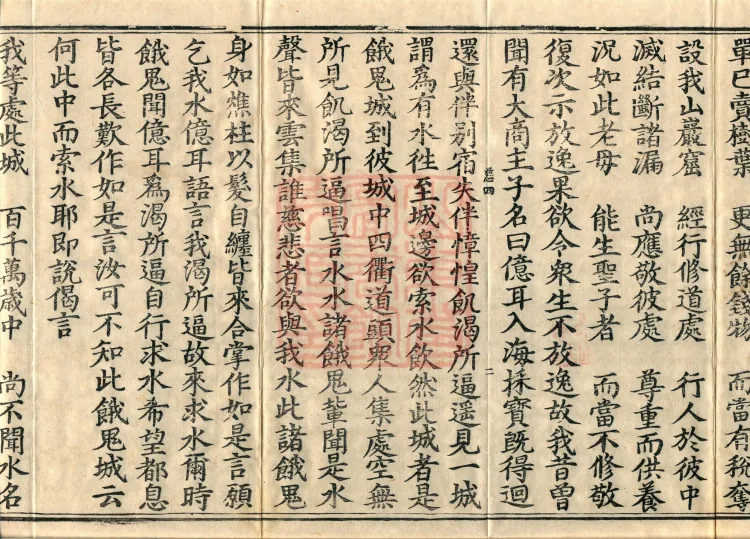 單已賣樹葉　更無餘錢物　而當有稅奪
設我山巖窟　經行修道處　行人於彼中
滅結斷諸漏　尚應敬彼處　尊重而供養
況如此老母　能生聖子者　而當不修敬
復次示放逸果欲令衆生不放逸故我昔曾
聞有大商主子名曰億耳入海採寶既得迴
還與伴別宿失伴慞惶飢渴所逼遥見一城
謂爲有水徃至城邊欲索水飲然此城者是
餓鬼城到彼城中四衢道頭衆人集處空無
所見飢渴所逼唱言水水諸餓鬼輩聞是水
聲皆來雲集誰慈悲者欲與我水此諸餓鬼
身如燋柱以髮自纏皆來合掌作如是言願
乞我水億耳語言我渴所逼故來求水爾時
餓鬼聞億耳爲渴所逼自行求水希望都息
皆各長歎作如是言汝可不知此餓鬼城云
何此中而索水耶即說偈言
我等處此城　百千萬歲中　尚不聞水名